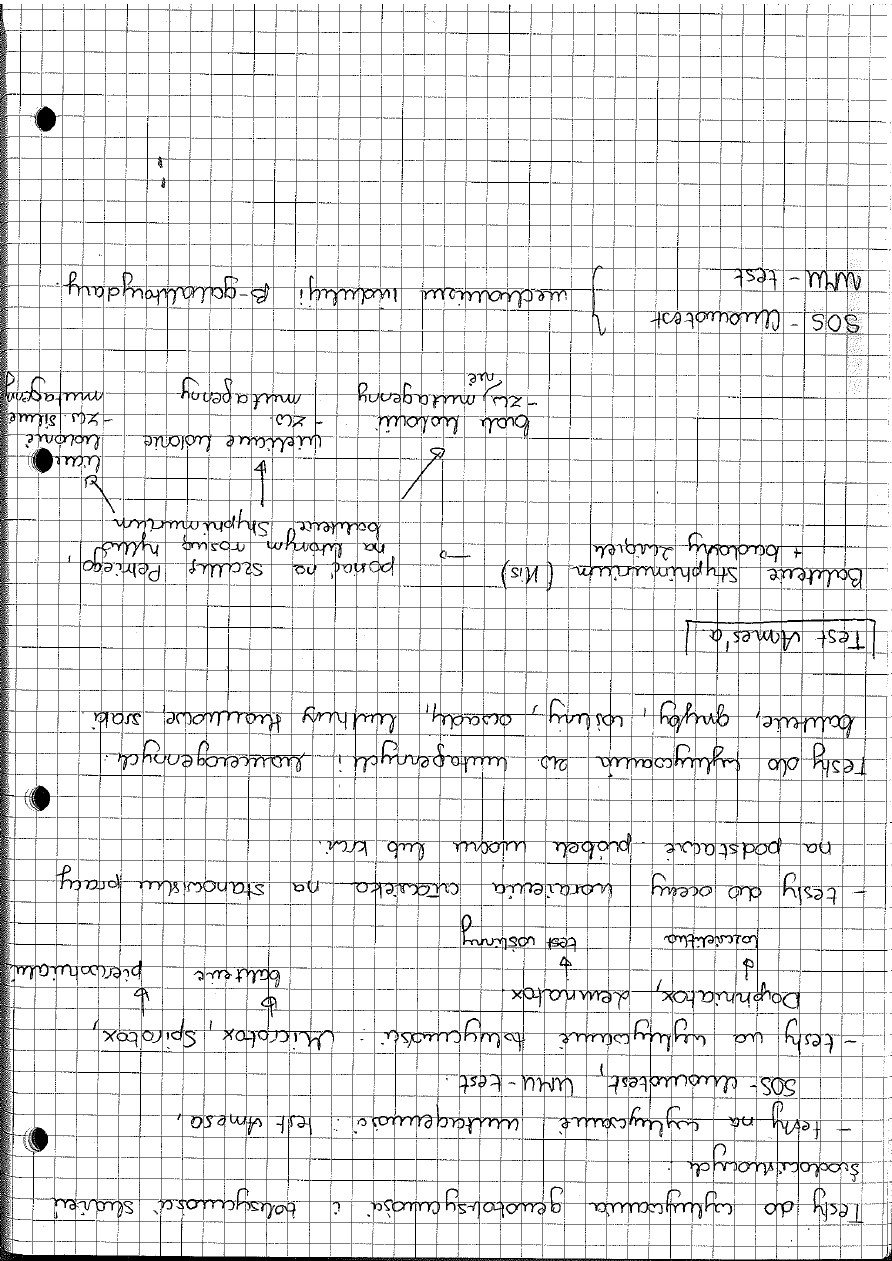 Testy do wykrywania genotoksyczności i toksyczności skażeń
środowiskowych.
- testy na wykrywanie mutagenności: test Amesa,
SOS-chromotest, UMU-test.
- testy na wykrywanie toksyczności: Microtox, Spirotox,
bakterie pierwotniaki
Daphniatox, lemnatox.
rozwielitka test roślinny
- testy do oceny narażenia człowieka na stanowisku pracy
na podstawie próbek moczu lub krwi.
Testy do wykrywania zw mutagennych i kancerogennych:
bakterie, grzyby, rośliny, owady, tkankowe, ssaki.
Test Ames'a
Bakterie S.typhimurium (His)
+ badany związek
ponad na szalkę Petriego,
na którym rosną tylko
bakterie S.typhimurium
brak kolonii
- zw. nie mutagenny
nieliczne kolonie
- zw. mutagenny
liczne kolonie
- zw. silnie mutagenny
SOS - Chromotest
UMU - test
mechanizm indukcji β-galaktozydazy.